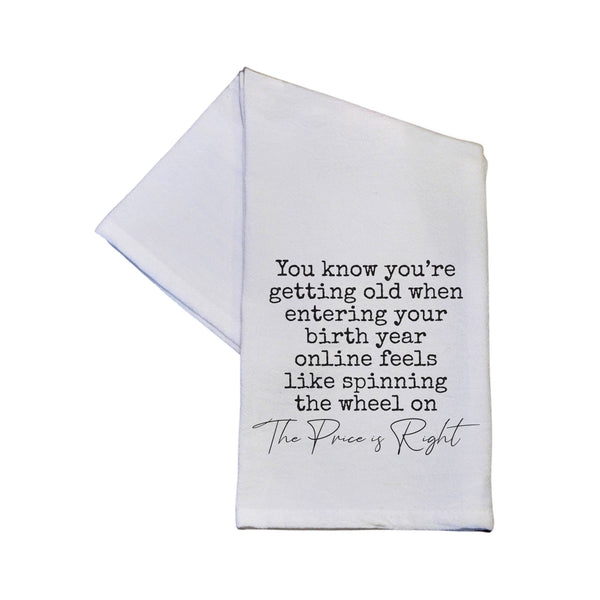 You know you’re
getting old when
entering your
birth year
online feels
like spinning
the wheel on
The Price is Right